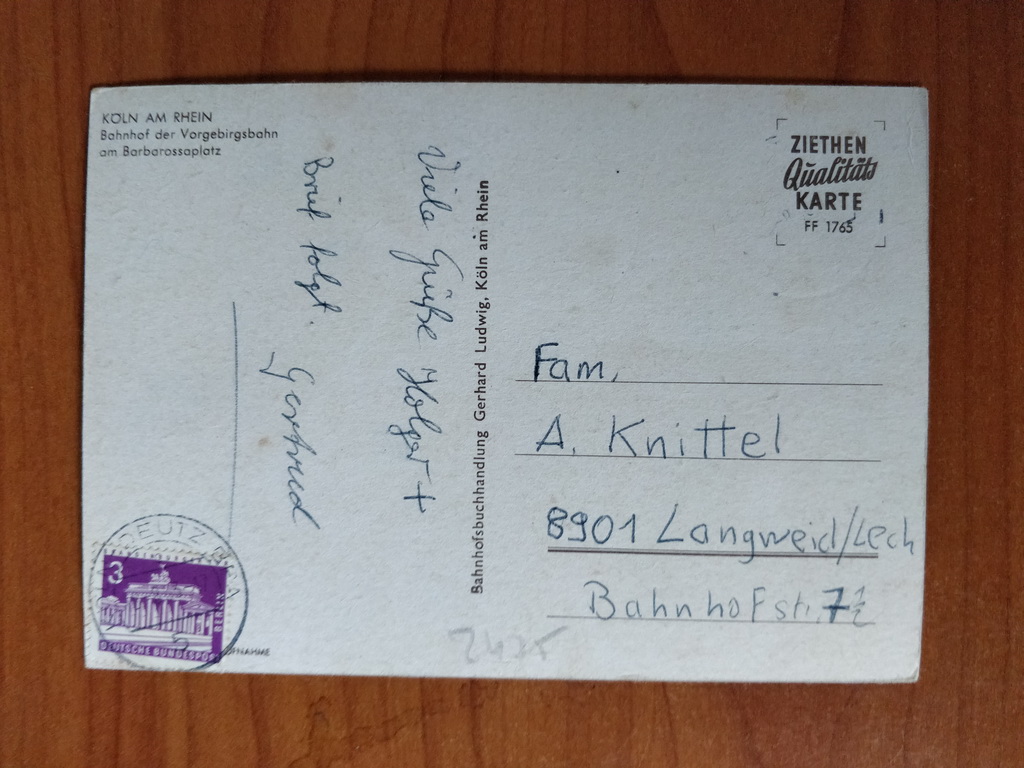 KÖLN AM RHEIN
Bahnhof der Vorgebirgsbahn
am Barbarossaplatz
ZIETHEN
Qualitäts
KARTE
FF 1765
Viele Grüße Holger +
Brief folgt. Gertrud
Bahnhofsbuchhandlung Gerhard Ludwig, Köln am Rhein
Fam.
A. Knittel
8901 Langweid/Lech
Bahnhofstr. 7 1/2
DEUTZ
3
BERLIN
DEUTSCHE BUNDESPOST